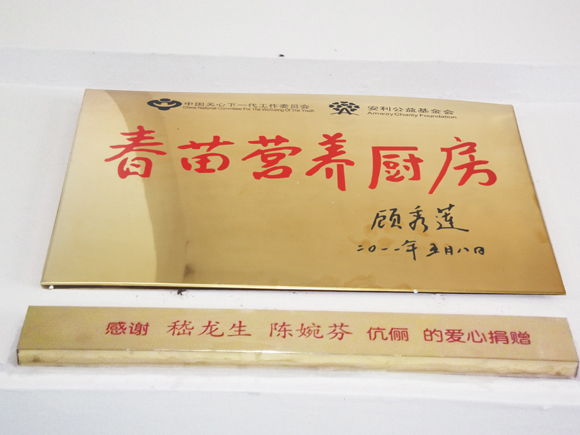 中国关心下一代工作委员会 安利公益基金会
China National Committee For The Wellbeing Of The Youth Amway Charity Foundation
春苗营养厨房
顾秀莲
二〇一一年五月八日
感谢 嵇龙生 陈婉芬 伉俪 的爱心捐赠